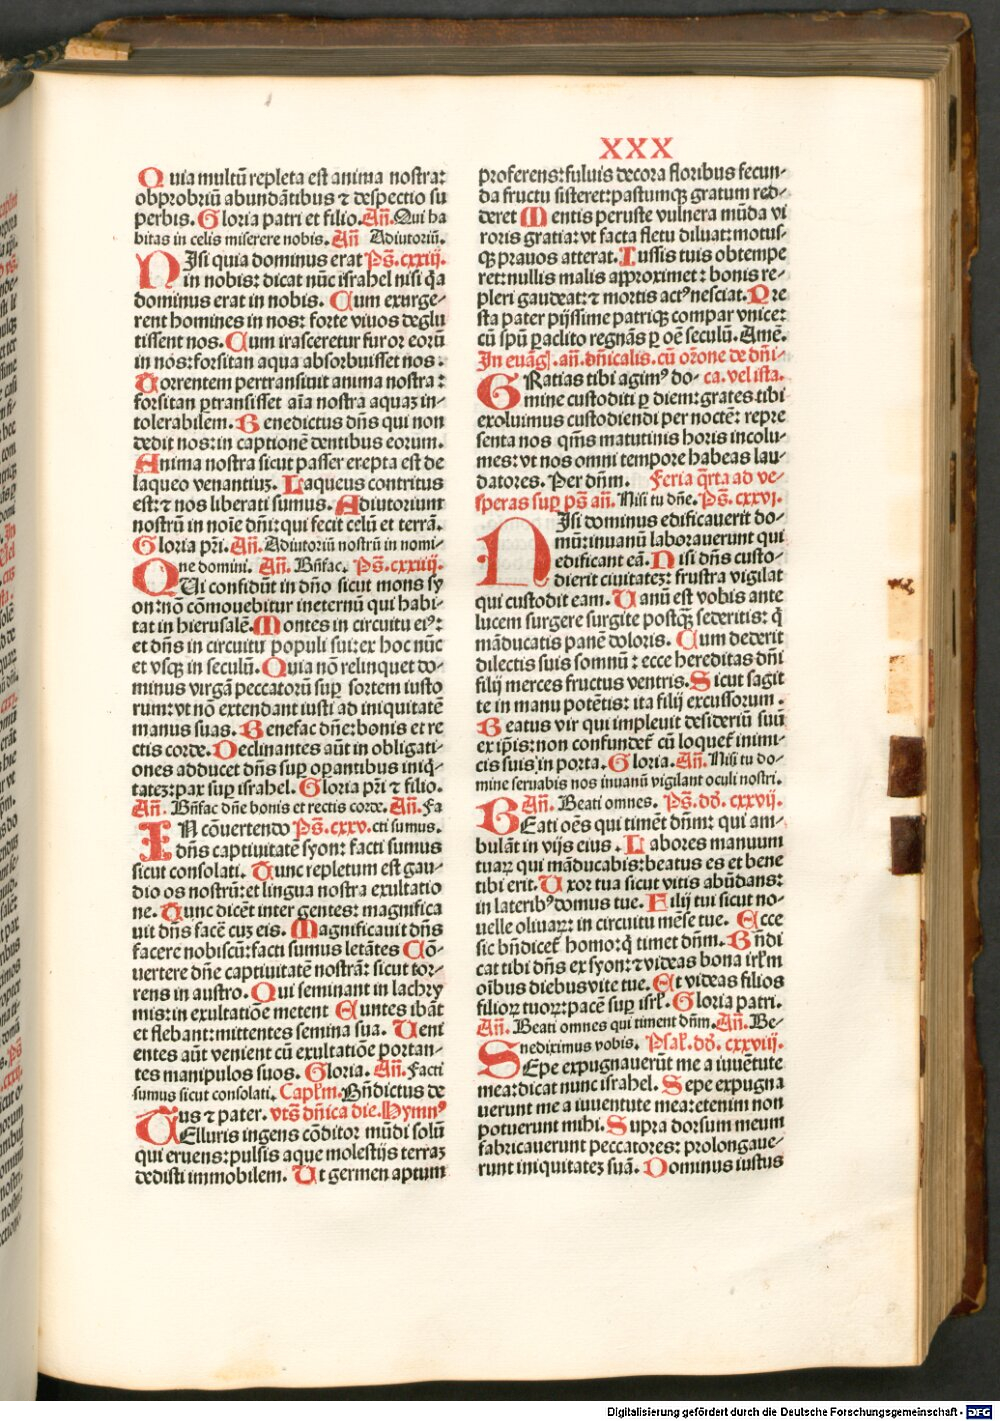 XXX
Quia multū repleta est anima nostra:
obprobriū abundātibus ⁊ despectio su
perbis. Gloria patri et filio. Añ. Qui ha
bitas in celis miserere nobis. Añ Adiutoriū.
NIsi quia dominus erat Ps̄. cxxiij.
in nobis: dicat nūc israhel nisi q̄a
dominus erat in nobis. Cum exurge-
rent homines in nos: forte viuos deglu
tissent nos. Cum irasceretur furor eorū
in nos: forsitan aqua absorbuisset nos.
Torrentem pertransiuit anima nostra:
forsitan ꝑtransisset aīa nostra aquaꝫ in-
tolerabilem. Benedictus dn̄s qui non
dedit nos: in captionē dentibus eorum.
Anima nostra sicut passer erepta est de
laqueo venantiuꝫ. Laqueus contritus
est: ⁊ nos liberati sumus. Adiutorium
nostrū in noīe dn̄i: qui fecit celū et terrā.
Gloria pr̄i. Añ. Adiutoriū nostrū in nomi-
ne domini. Añ. Bn̄fac. Ps̄. cxxiiij.
QUi confidūt in dn̄o sicut mons sy
on: nō cōmouebitur ineternū qui habi-
tat in hierusalē. Montes in circuitu eiꝰ:
et dn̄s in circuitu populi sui: ex hoc nūc
et vsqꝫ in seculū. Quia nō relinquet do-
minus virgā peccatorū suꝑ sortem iusto
rum: vt nō extendant iusti ad iniquitatē
manus suas. Benefac dn̄e: bonis et re
ctis corde. Declinantes aūt in obligati-
ones adducet dn̄s suꝑ oꝑantibus iniq̄-
tateꝫ: pax suꝑ israhel. Gloria pr̄i ⁊ filio.
Añ. Bn̄fac dn̄e bonis et rectis corde. Añ. Fa
IN cōuertendo Ps̄. cxxv. cti sumus.
dn̄s captiuitatē syon: facti sumus
sicut consolati. Tunc repletum est gau-
dio os nostrū: et lingua nostra exultatio
ne. Tunc dicēt inter gentes: magnifica
uit dn̄s facē cuꝫ eis. Magnificauit dn̄s
facere nobiscū: facti sumus letātes Cō-
uertere dn̄e captiuitatē nostrā: sicut tor-
rens in austro. Qui seminant in lachry
mis: in exultatiōe metent Euntes ibāt
et flebant: mittentes semina sua. Ueni
entes aūt venient cū exultatiōe portan-
tes manipulos suos. Gloria. Añ. Facti
sumus sicut consolati. Capl̄m. Bn̄dictus de
us ⁊ pater. vt̄s dn̄ica die. Hymnꝰ
TElluris ingens cōditor mūdi solū
qui eruens: pulsis aque molestijs terraꝫ
dedisti immobilem. Ut germen aptum
proferens: fuluis decora floribus fecun-
da fructu sisteret: pastumqꝫ gratum red-
deret Mentis peruste vulnera mūda vi
roris gratia: vt facta fletu diluat: motus-
qꝫ prauos atterat. Iussis tuis obtempe
ret: nullis malis approximet: bonis re-
pleri gaudeat: ⁊ mortis actꝰ nesciat. Pre
sta pater pijssime patriqꝫ compar vnice:
cū spū ꝑaclito regnās ꝑ oē seculū. Amē.
In euāgl̄. añ. dn̄icalis. cū or̄one de dn̄i-
GRatias tibi agimꝰ do- ca. vel ista.
mine custoditi ꝑ diem: grates tibi
exoluimus custodiendi per noctē: repre
senta nos qm̄s matutinis horis incolu-
mes: vt nos omni tempore habeas lau-
datores. Per dn̄m. Feria q̄rta ad ve-
speras suꝑ ps̄ añ. Nisi tu dn̄e. Ps̄. cxxvj.
NIsi dominus edificauerit do-
mū: inuanū laborauerunt qui
edificant eā. Nisi dn̄s custo-
dierit ciuitateꝫ: frustra vigilat
qui custodit eam. Uanū est vobis ante
lucem surgere surgite postqꝫ sederitis: q̄
māducatis panē doloris. Cum dederit
dilectis suis somnū: ecce hereditas dn̄i
filij merces fructus ventris. Sicut sagit
te in manu potētis: ita filij excussorum.
Beatus vir qui impleuit desideriū suū
ex ip̄is: non confundet̄ cū loquet̄ inimi-
cis suis in porta. Gloria. Añ. Nisi tu do-
mine seruabis nos inuanū vigilant oculi nostri.
Añ. Beati omnes. Ps̄. dd̄. cxxvij.
BEati oēs qui timēt dn̄m: qui am-
bulāt in vijs eius. Labores manuum
tuaꝝ qui māducabis: beatus es et bene
tibi erit. Uxor tua sicut vitis abūdans:
in lateribꝰ domus tue. Filij tui sicut no-
uelle oliuaꝝ: in circuitu mēse tue. Ecce
sic bn̄dicet̄ homo: q̄ timet dn̄m. Bn̄di
cat tibi dn̄s ex syon: ⁊ videas bona irl̄m
oībus diebus vite tue. Et videas filios
filioꝝ tuoꝝ: pacē suꝑ isrl̄. Gloria patri.
Añ. Beati omnes qui timent dn̄m. Añ. Be-
nediximus vobis. Psal̄. dd̄. cxxviij.
SEpe expugnauerūt me a iuuētute
mea: dicat nunc israhel. Sepe expugna
uerunt me a iuuentute mea: etenim non
potuerunt mihi. Supra dorsum meum
fabricauerunt peccatores: prolongaue-
runt iniquitateꝫ suā. Dominus iustus
Digitalisierung gefördert durch die Deutsche Forschungsgemeinschaft - DFG